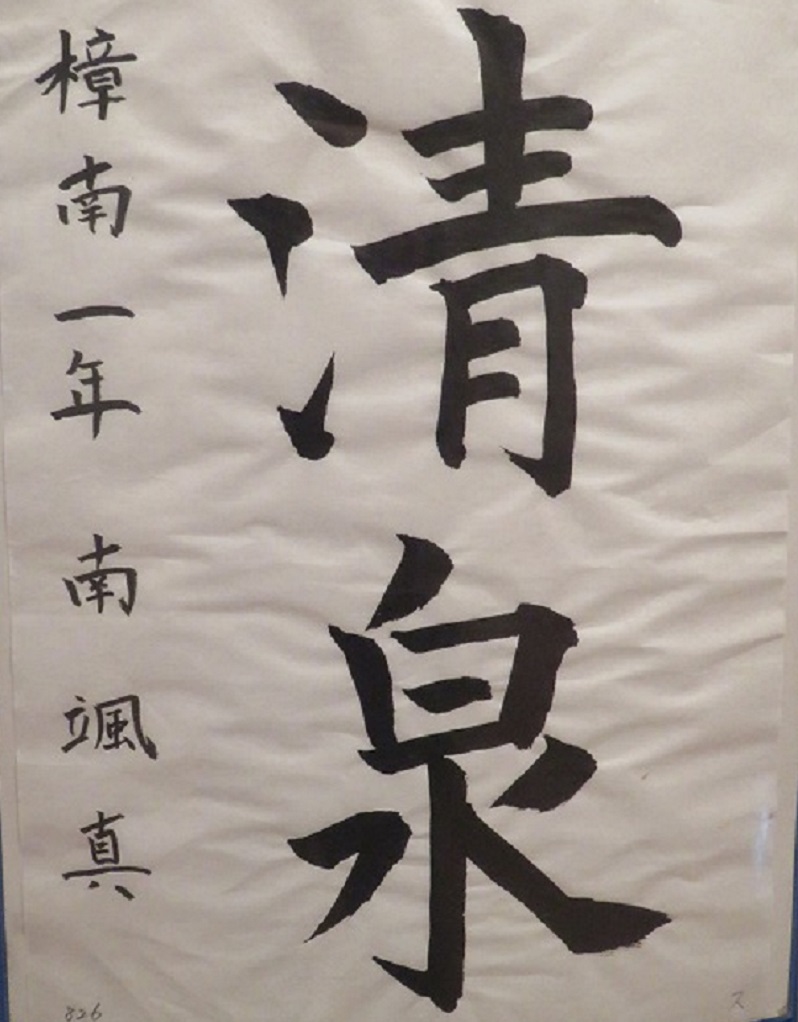 清泉
樟南一年 南 颯真
826